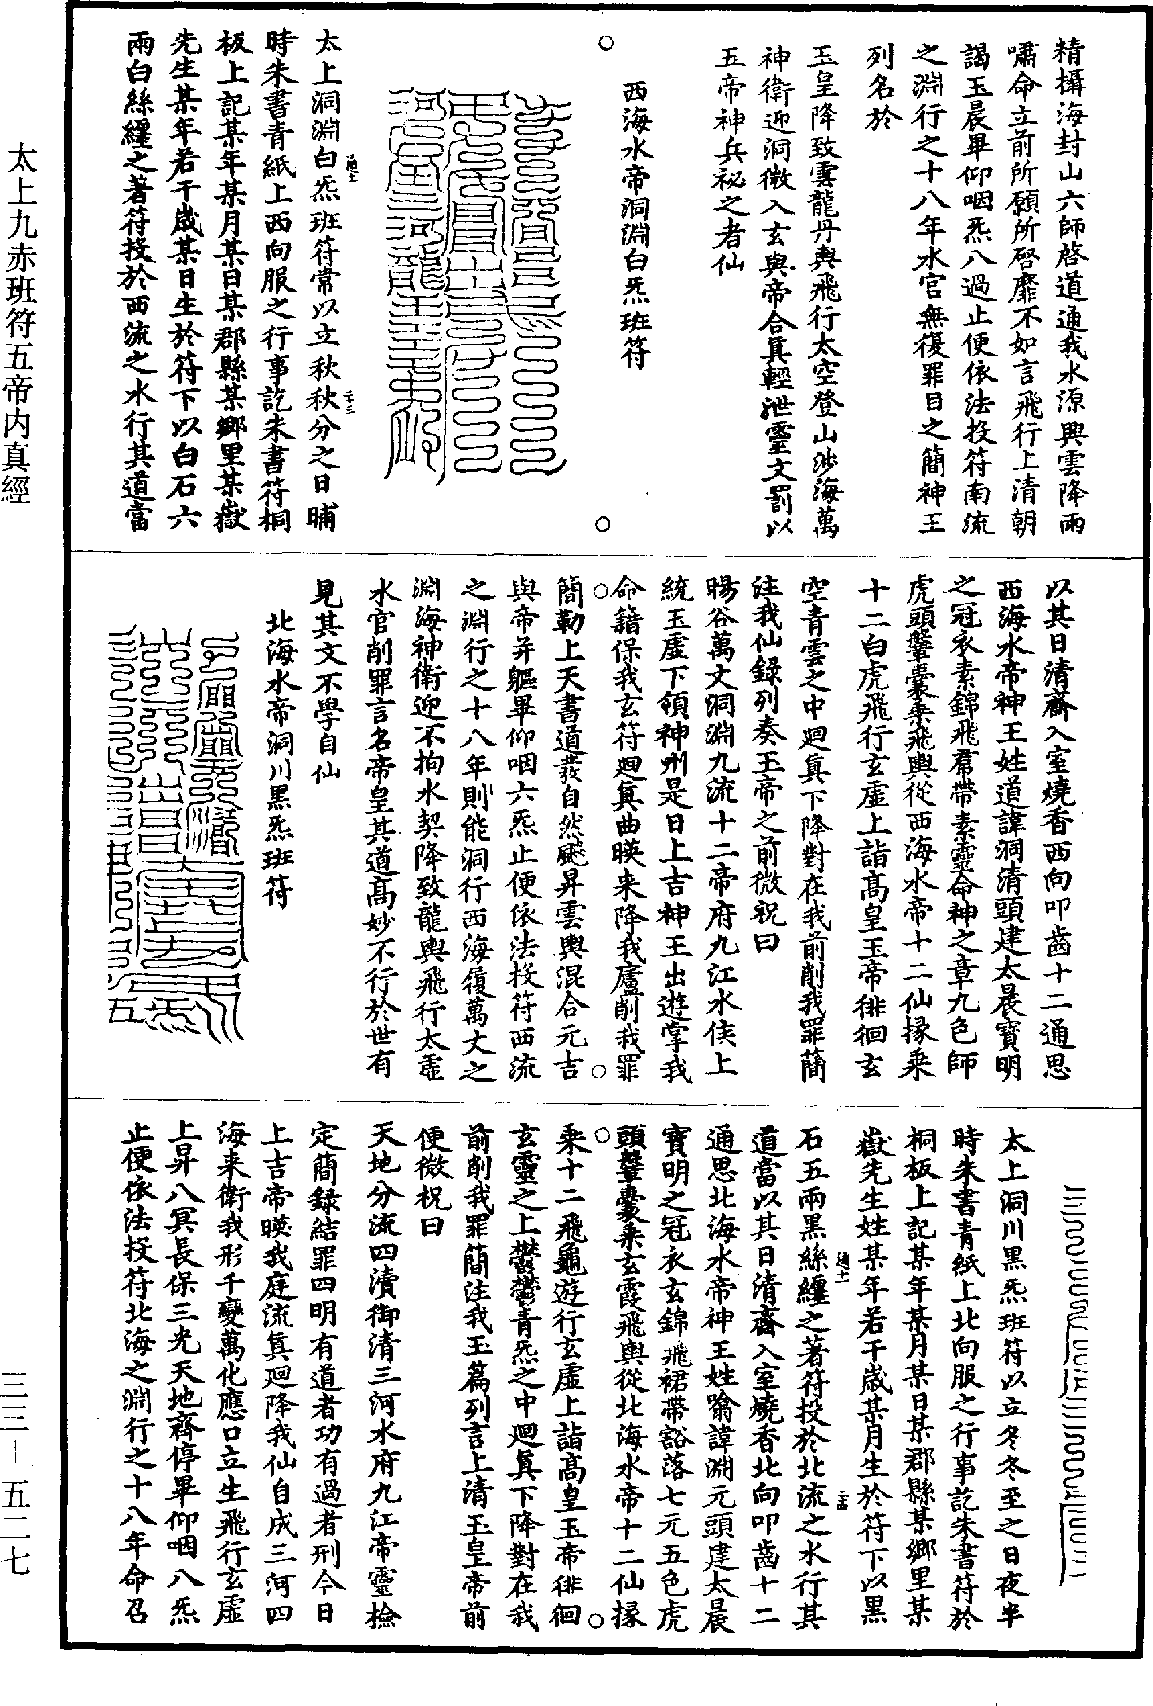 精攝海封山六師啓道通我水源興雲降雨
嘯命立前所願所啓靡不如言飛行上清朝
謁玉晨畢仰咽炁八過止便依法投符南流
之淵行之十八年水官無復罪目之簡神王
列名於
玉皇降致雲龍丹輿飛行太空登山涉海萬
神衛迎洞微入玄與帝合真輕泄靈文罰以
五帝神兵祕之者仙
西海水帝洞淵白炁班符
太上洞淵白炁班符常以立秋秋分之日晡
時朱書青紙上西向服之行事訖朱書符桐
板上記某年某月某日某郡縣某鄉里某嶽
先生某年若干歲某日生於符下以白石六
兩白絲纏之著符投於西流之水行其道當
以其日清齋入室燒香西向叩齒十二通思
西海水帝神王姓道諱洞清頭建太晨寶明
之冠衣素錦飛帬帶素靈命神之章九色師
虎頭鞶囊乘飛輿從西海水帝十二仙掾乘
十二白虎飛行玄虛上詣高皇玉帝徘徊玄
空青雲之中迴真下降對在我前削我罪簡
注我仙錄列奏玉帝之前微祝曰
暘谷萬丈洞淵九流十二帝府九江水侯上
統玉虛下領神州是日上吉神王出遊掌我
命籍保我玄符迴真曲映來降我廬削我罪
簡勒上天書道發自然飈昇雲輿混合元吉
與帝并軀畢仰咽六炁止便依法投符西流
之淵行之十八年則能洞行西海履萬丈之
淵海神衛迎不拘水契降致龍輿飛行太虛
水官削罪言名帝皇其道高妙不行於世有
見其文不學自仙
北海水帝洞川黑炁班符
太上洞川黑炁班符以立冬冬至之日夜半
時朱書青紙上北向服之行事訖朱書符於
桐板上記某年某月某日某郡縣某鄉里某
嶽先生姓某年若干歲某月生於符下以黑
石五兩黑絲纏之著符投於北流之水行其
道當以其日清齋入室燒香北向叩齒十二
通思北海水帝神王姓喻諱淵元頭建太晨
寶明之冠衣玄錦飛裙帶豁落七元五色虎
頭鞶囊乘玄霞飛輿從北海水帝十二仙掾
乘十二飛龜遊行玄虛上詣高皇玉帝徘徊
玄靈之上鬱鬱青炁之中迴真下降對在我
前削我罪簡注我玉篇列言上清玉皇帝前
便微祝曰
天地分流四瀆御清三河水府九江帝靈檢
定簡錄結罪四明有道者功有過者刑今日
上吉帝映我庭流真迴降我仙自成三河四
海來衛我形千變萬化應口立生飛行玄虛
上昇八冥長保三光天地齊停畢仰咽八炁
止便依法投符北海之淵行之十八年命召
太上九赤班符五帝内真經
三三—五二七